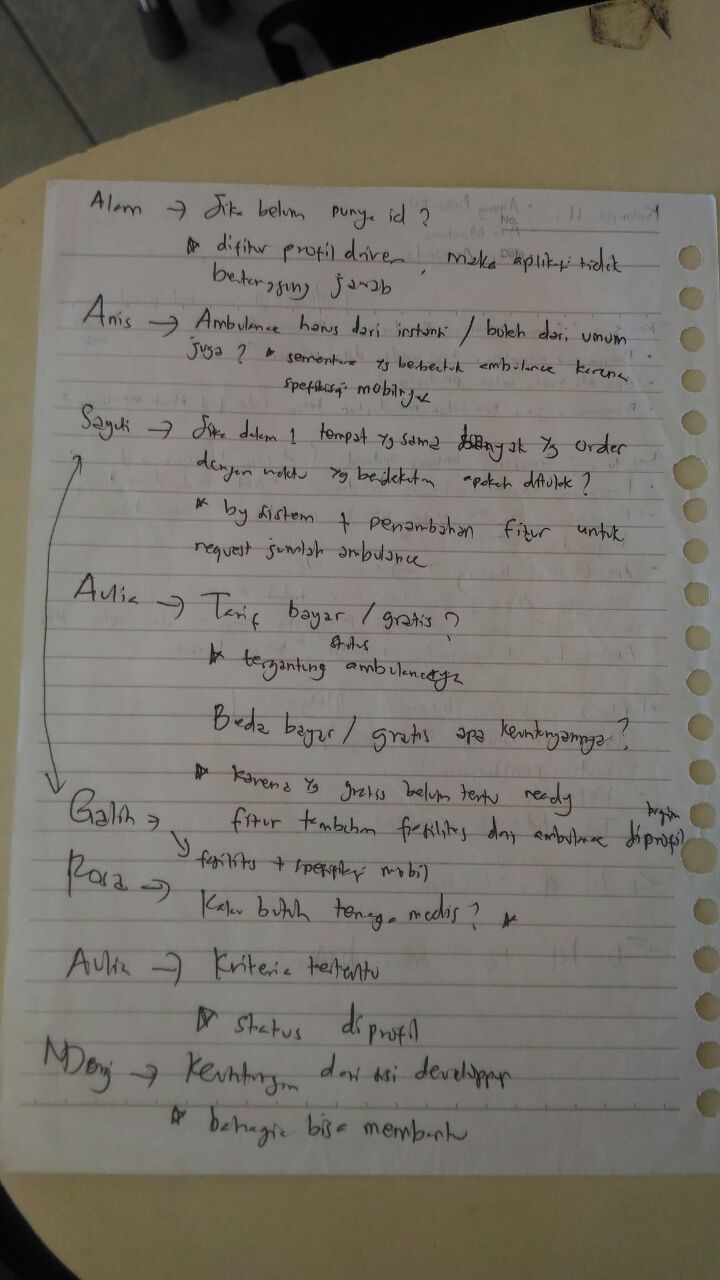 Alam → Jika belum punya id ?
* difitur profil driver, maka aplikasi tidak
bertanggung jawab
Anis → Ambulance harus dari instansi / boleh dari umum
juga ? * sementara yg berbentuk ambulance karena
spesifikasi mobilnya
Sayuti → Jika dalam 1 tempat yg sama banyak yg order
dengan waktu yg berdekatan apakah ditolak ?
* by sistem + penambahan fitur untuk
request jumlah ambulance
Aulia → Tarif bayar / gratis ?
status
* tergantung ambulancenya
Beda bayar / gratis apa keuntungannya ?
* karena yg gratis belum tentu ready
Galih → fitur tambahan fasilitas dari ambulance diprofil
↘ fasilitas + spesifikasi mobil
Rosa → Kalau butuh tenaga medis ? *
Aulia → Kriteria tertentu
* status diprofil
→ Keuntungan dari sisi developper
* bahagia bisa membantu